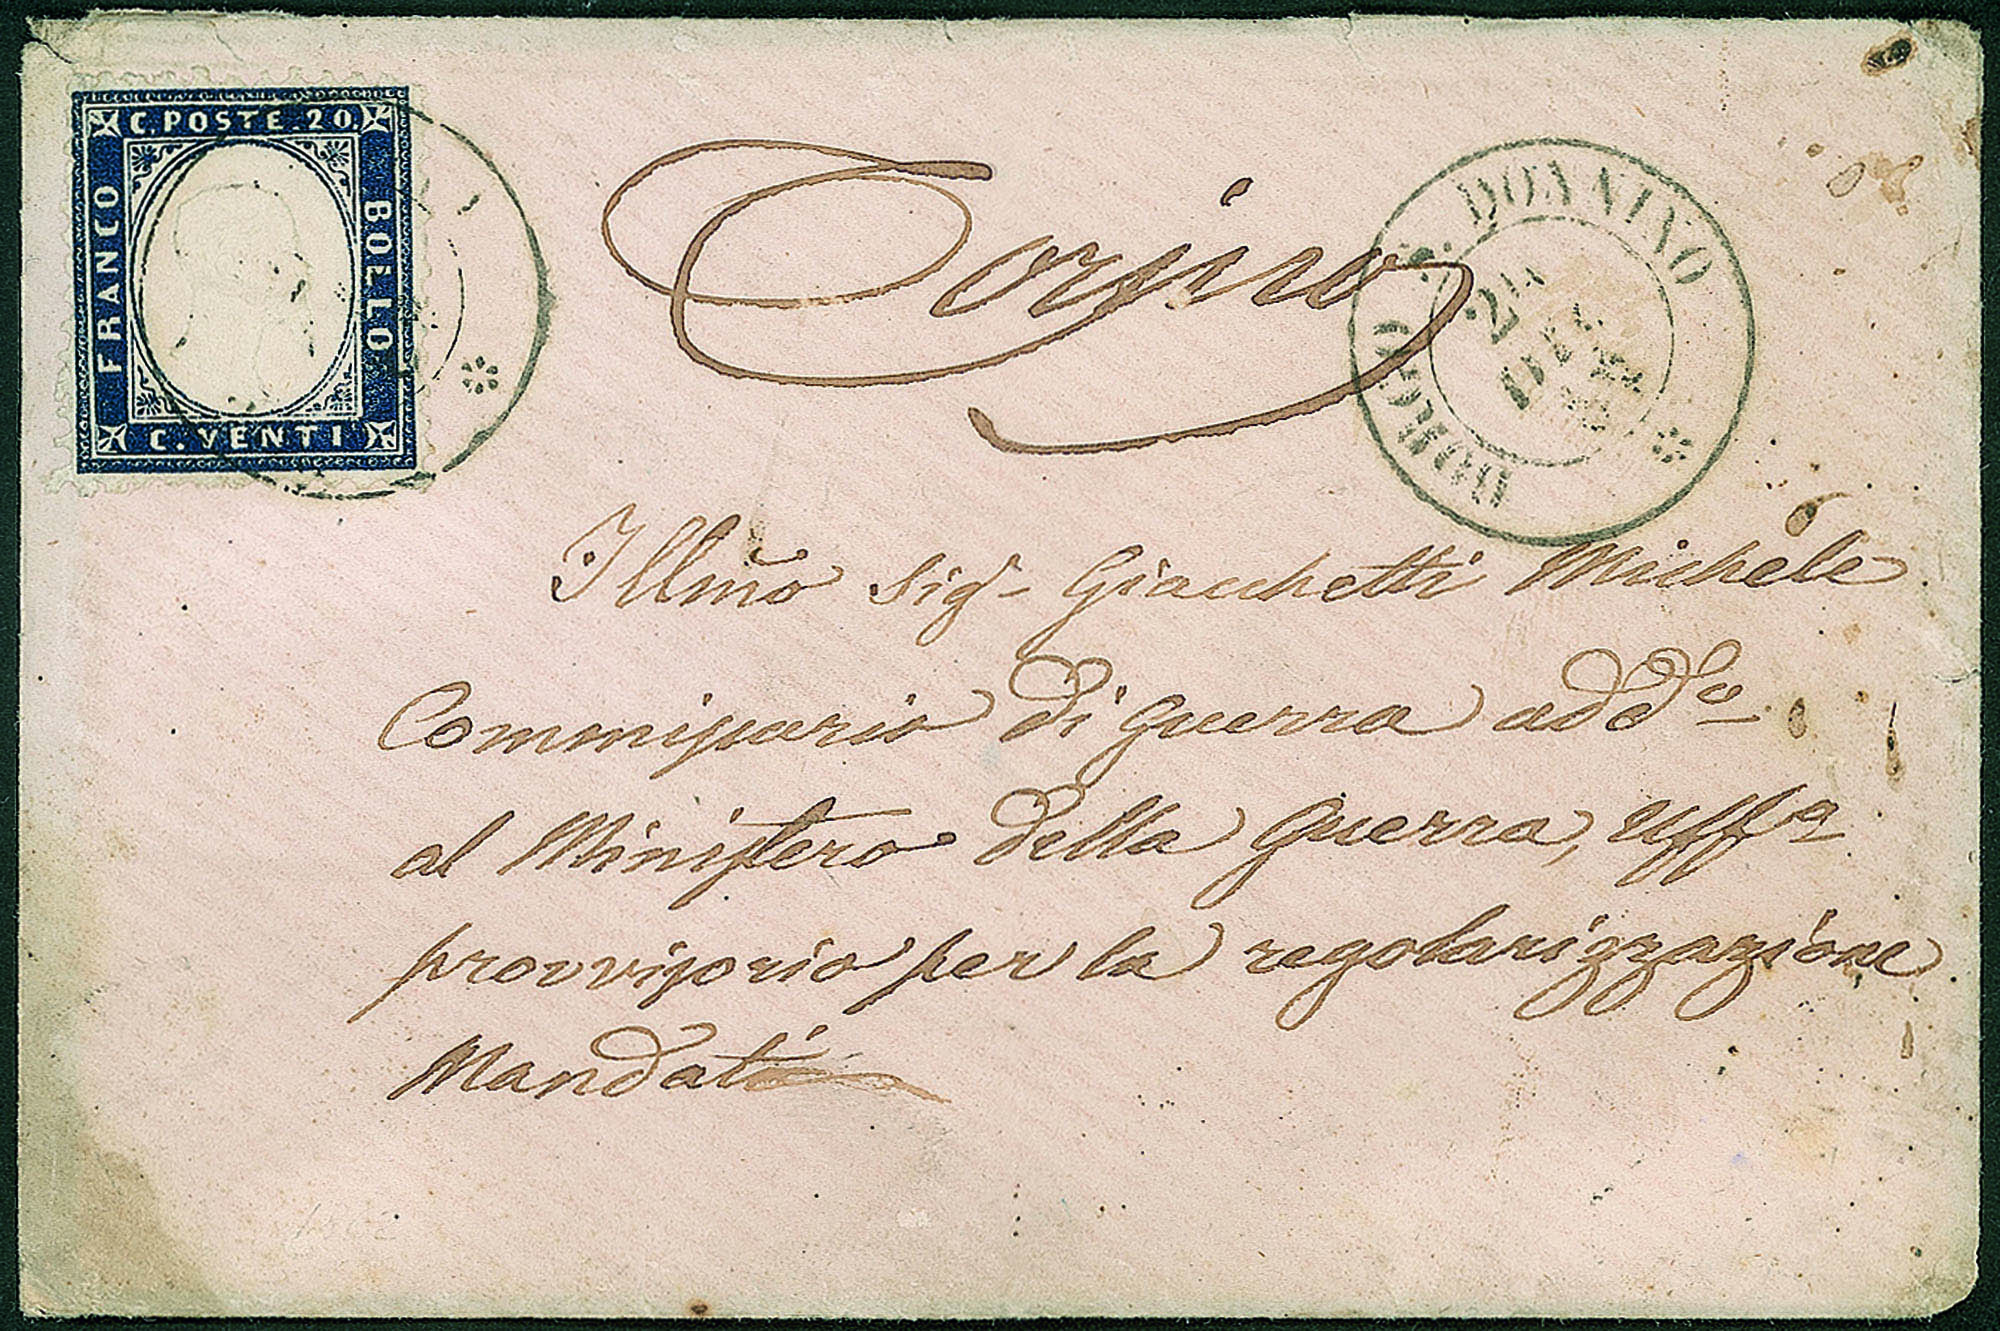 C. POSTE. 20.
FRANCO
BOLLO
C. VENTI
Torino
BORGO S. DONNINO
24
DIC
Illmo Sigr Giacchetti Michele
Commissario di Guerra addo
al Ministero della Guerra, Uffo
provvisorio per la regolarizzazione
Mandati
1862